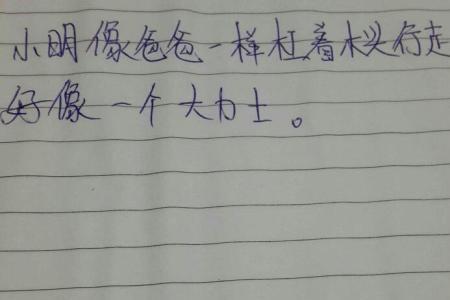 小明像爸爸一样杠着木头行走
好像一个大力士。